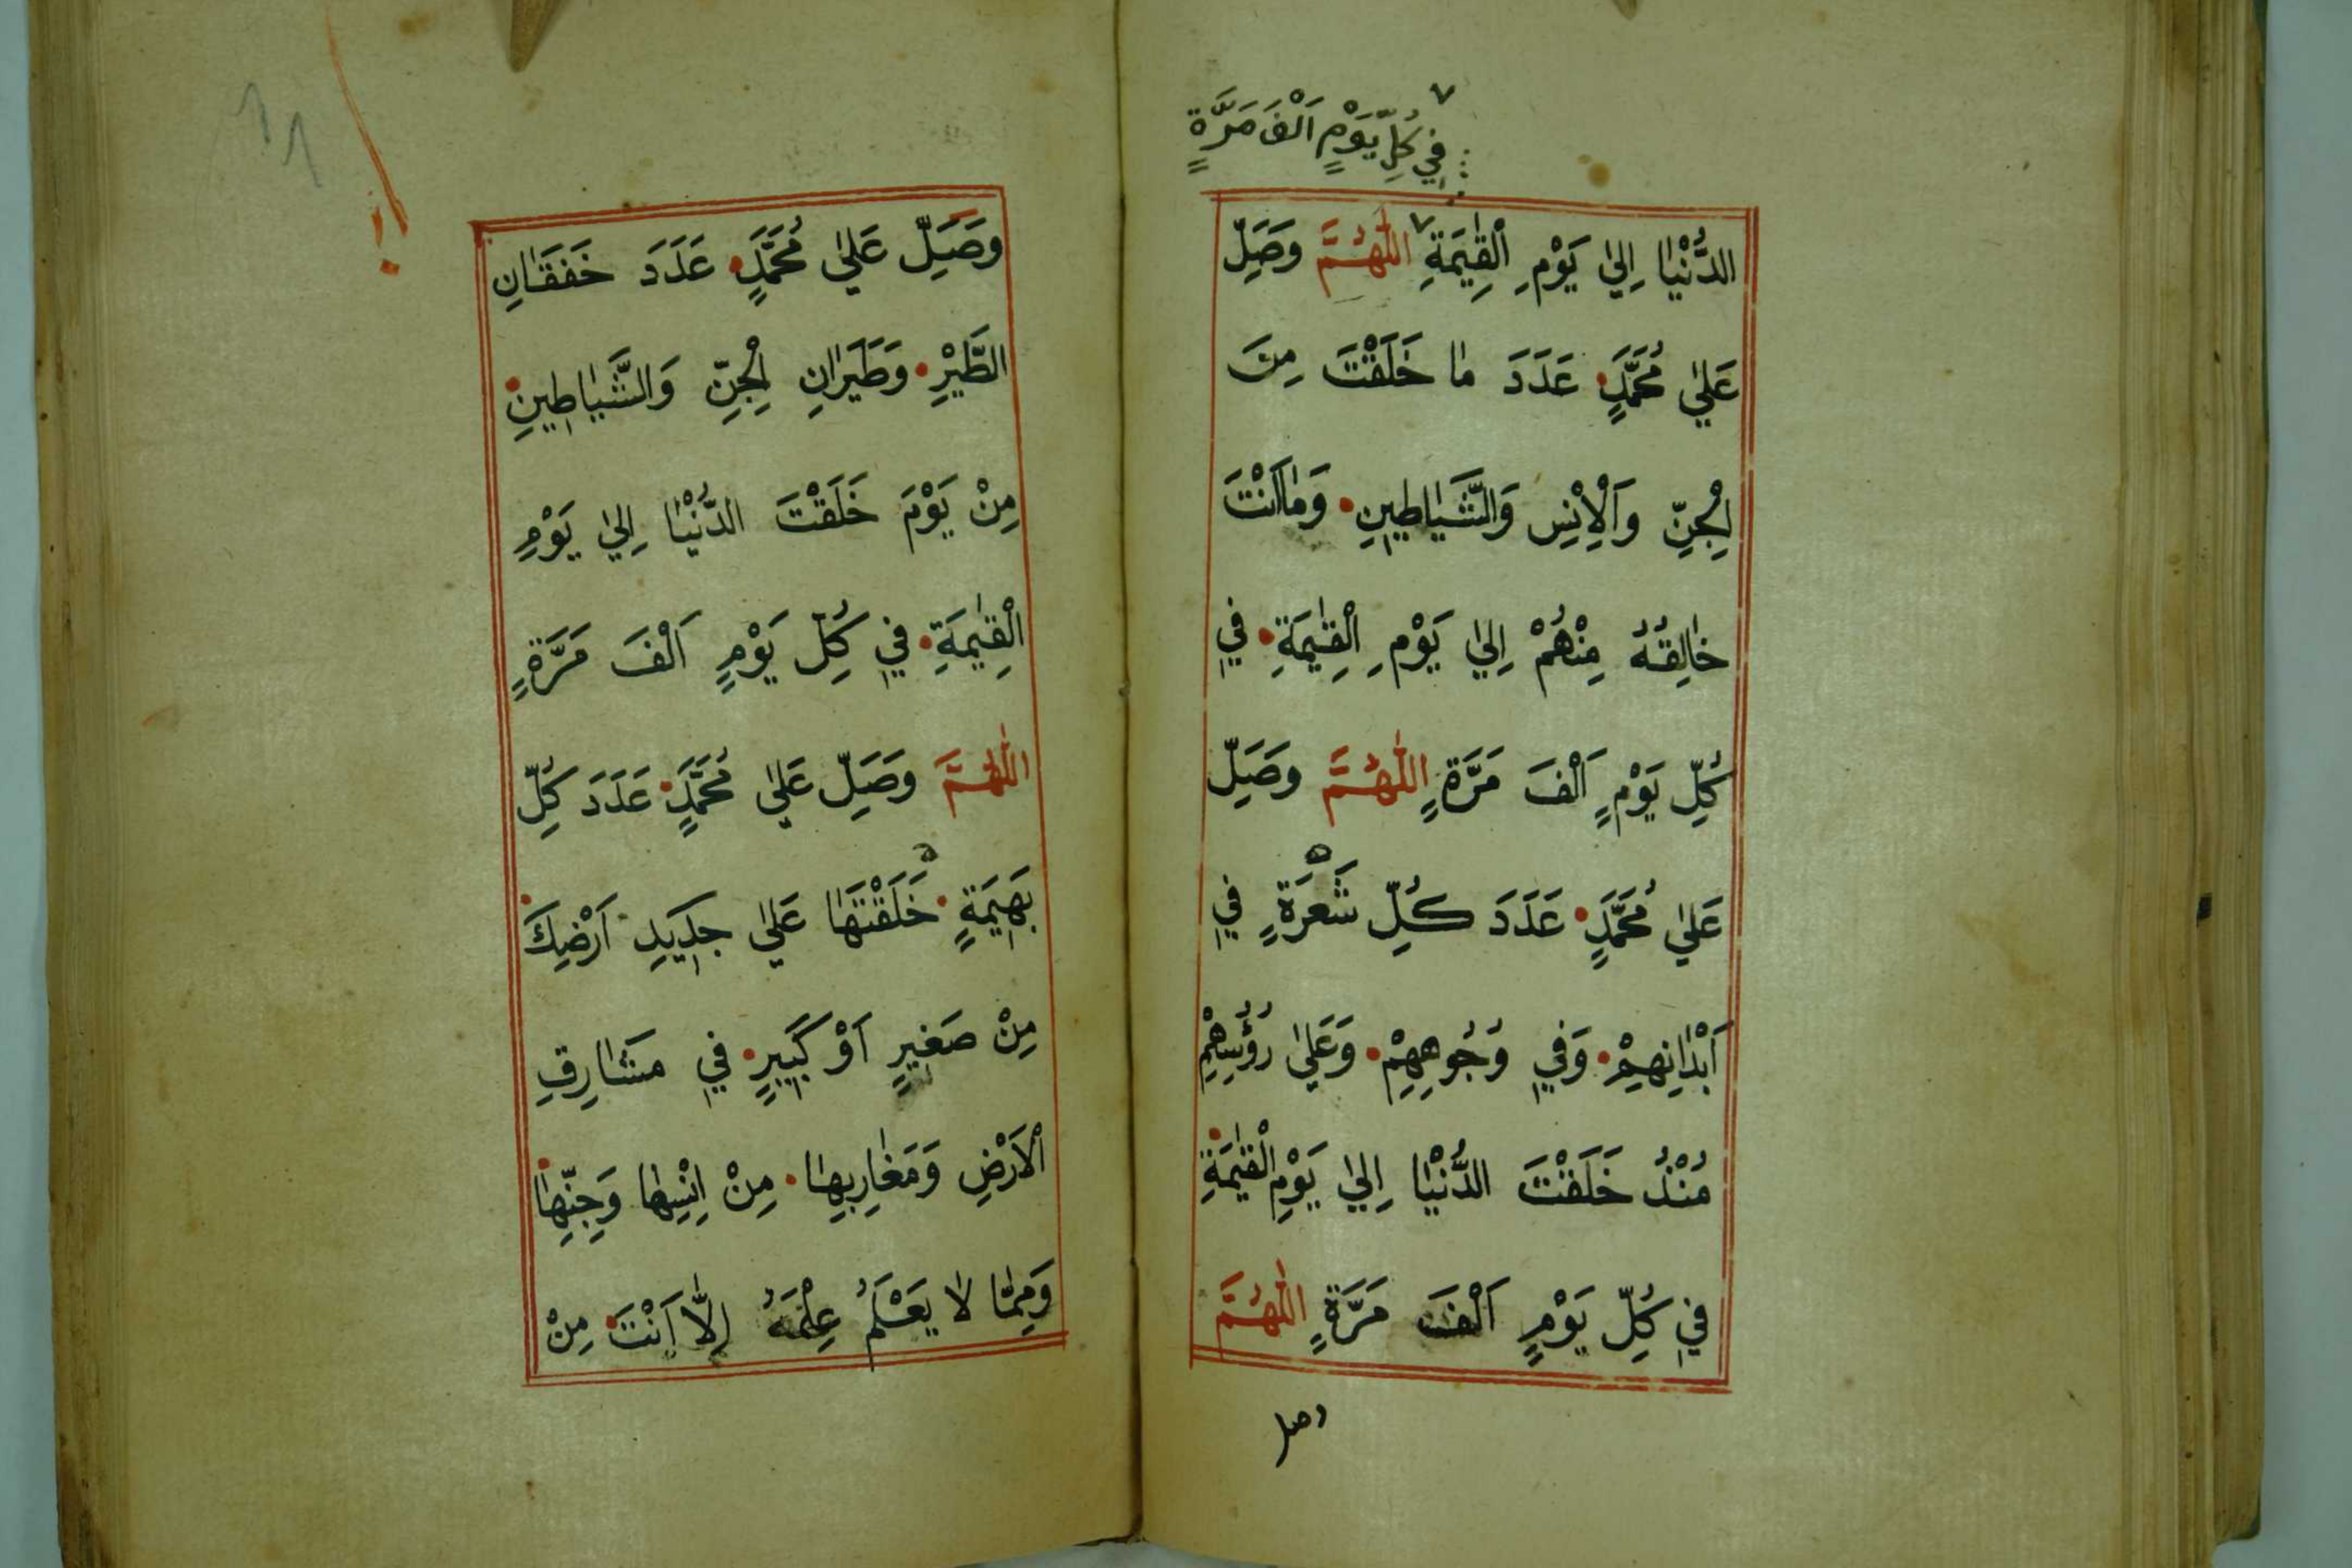 فِي كُلِّ يَوْمٍ اَلْفَ مَرَّةٍ
الدُّنْيٰا اِلىٰ يَوْمِ الْقِيٰمَةِ اَللّٰهُمَّ وَصَلِّ
عَلىٰ مُحَمَّدٍ عَدَدَ مٰا خَلَقْتَ مِنَ
الْجِنِّ وَاَلْاِنْسِ وَالشَّيٰاطِينِ وَمٰا اَنْتَ
خٰالِقُهُ مِنْهُمْ اِلىٰ يَوْمِ الْقِيٰمَةِ فِي
كُلِّ يَوْمٍ اَلْفَ مَرَّةٍ اَللّٰهُمَّ وَصَلِّ
عَلىٰ مُحَمَّدٍ عَدَدَ كُلِّ شَعْرَةٍ فِي
اَبْدٰانِهِمْ وَفِي وُجُوهِهِمْ وَعَلىٰ رُؤُسِهِمْ
مُنْذُ خَلَقْتَ الدُّنْيٰا اِلىٰ يَوْمِ الْقِيٰمَةِ
فِي كُلِّ يَوْمٍ اَلْفَ مَرَّةٍ اَللّٰهُمَّ
وصل
وَصَلِّ عَلىٰ مُحَمَّدٍ عَدَدَ خَفَقٰانِ
الطَّيْرِ وَطَيَرٰانِ الْجِنِّ وَالشَّيٰاطِينِ
مِنْ يَوْمَ خَلَقْتَ الدُّنْيٰا اِلىٰ يَوْمِ
الْقِيٰمَةِ فِي كُلِّ يَوْمٍ اَلْفَ مَرَّةٍ
اَللّٰهُمَّ وَصَلِّ عَلىٰ مُحَمَّدٍ عَدَدَ كُلِّ
بَهِيمَةٍ خَلَقْتَهٰا عَلىٰ جَدِيدِ اَرْضِكَ
مِنْ صَغِيرٍ اَوْ كَبِيرٍ فِي مَشٰارِقِ
الْاَرْضِ وَمَغٰارِبِهٰا مِنْ اِنْسِهٰا وَجِنِّهٰا
وَمِمّٰا لٰا يَعْلَمُ عِلْمَهُ اِلّٰا اَنْتَ مِنْ